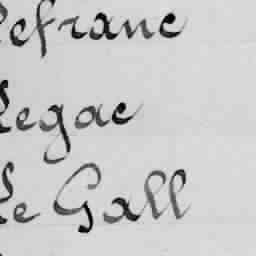 Lefranc
Legac
Le Gall